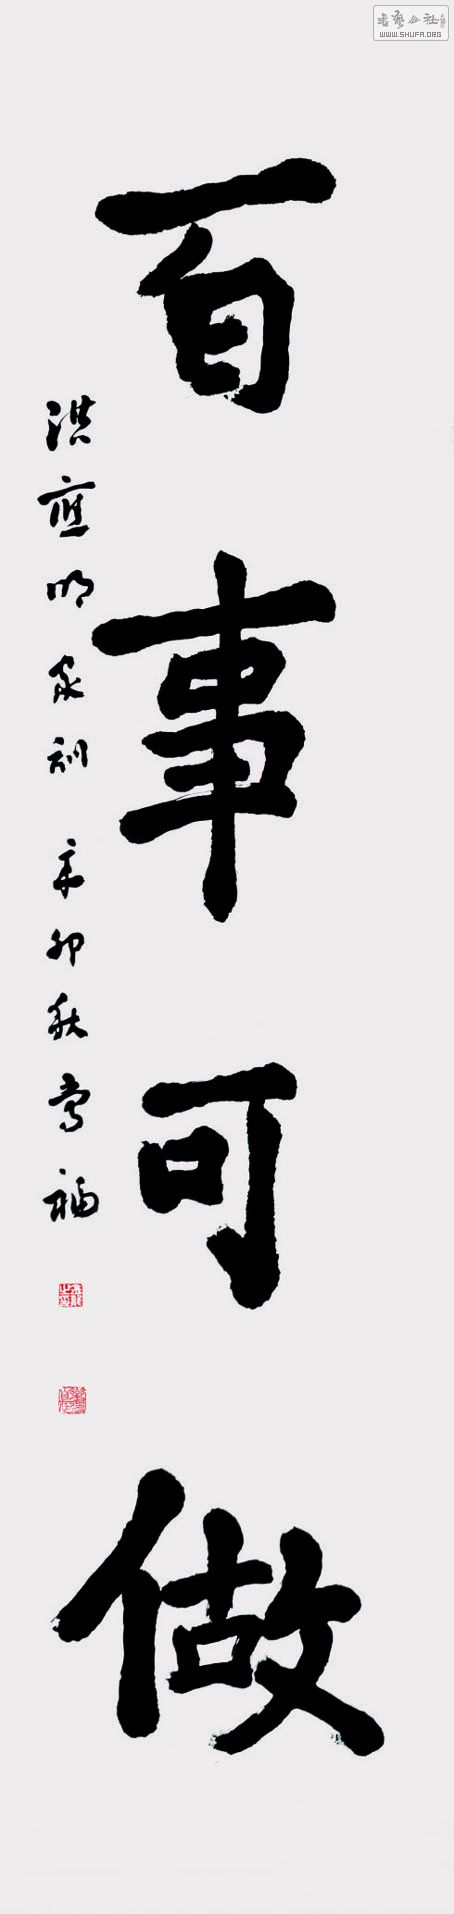 百事可做
洪應明家訓 辛卯秋
書藝公社
WWW.SHUFA.ORG